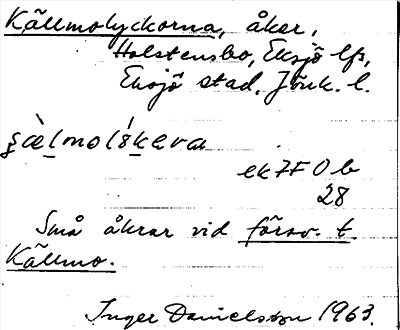 Källmolyckorna, åker,
Holstensbo, Eksjö lfs,
Eksjö stad, Jönk. l.
ek 7F 0b
28
Små åkrar vid försv. t.
Källmo.
Inger Danielsson 1963.